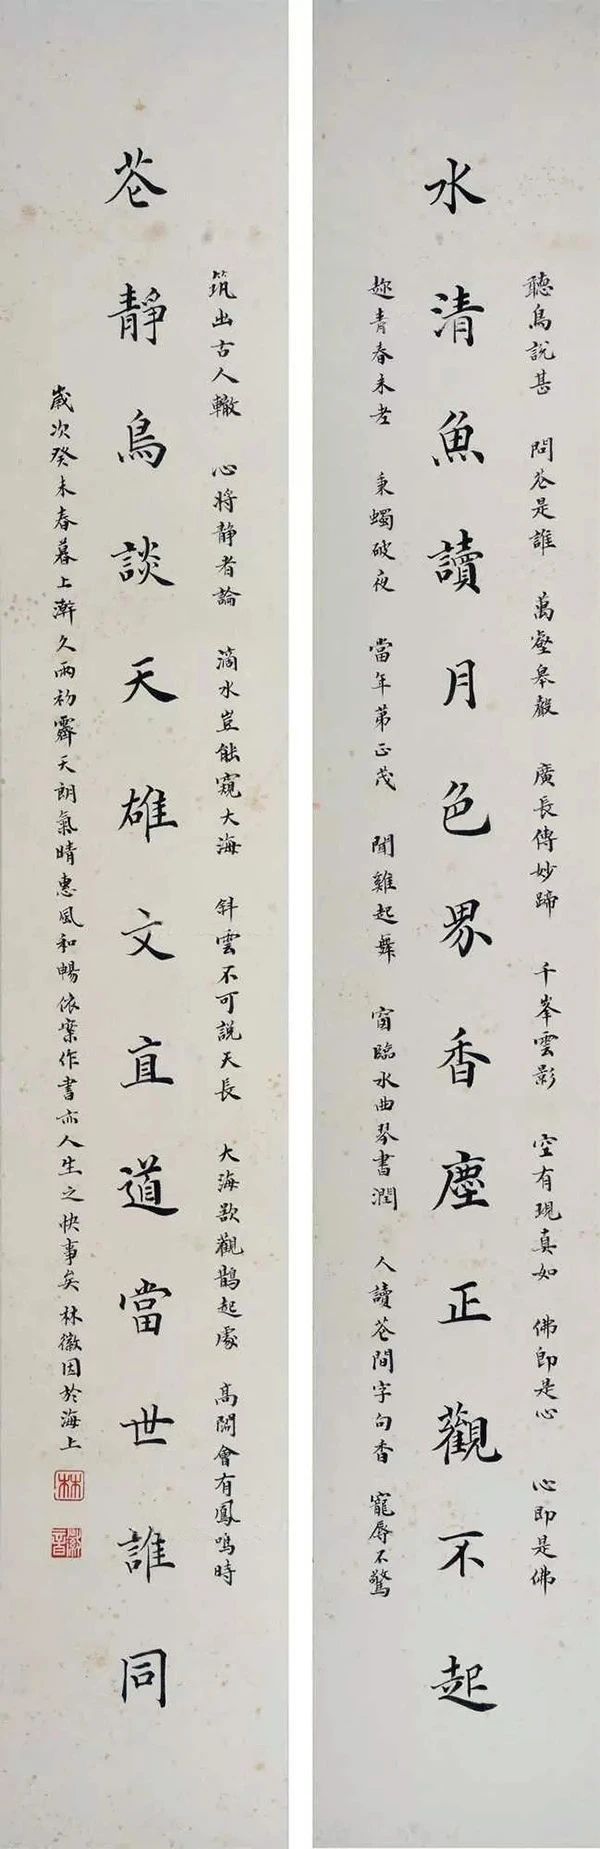 聽鳥說甚 問花是誰 萬壑皋 廣長傳妙蹄 千峯雲影 空有現真如 佛即是心 心即是佛
水清魚讀月色界香塵正觀不起
趁青春未老 秉蠋破夜 當年第正茂 聞雞起舞 窗臨水曲琴書潤 人讀花間字句香 寵辱不驚
筑出古人轍 心將静者論 滴水豈能窺大海 斜雲不可說天長 大海欲觀鵲起處 高閣會有鳳鳴時
花靜鳥談天雄文直道當世誰同
歲次癸未春暮上澣久雨初霽天朗氣晴惠風和暢依案作書亦人生之快事矣林徽因於海上
林
徽音